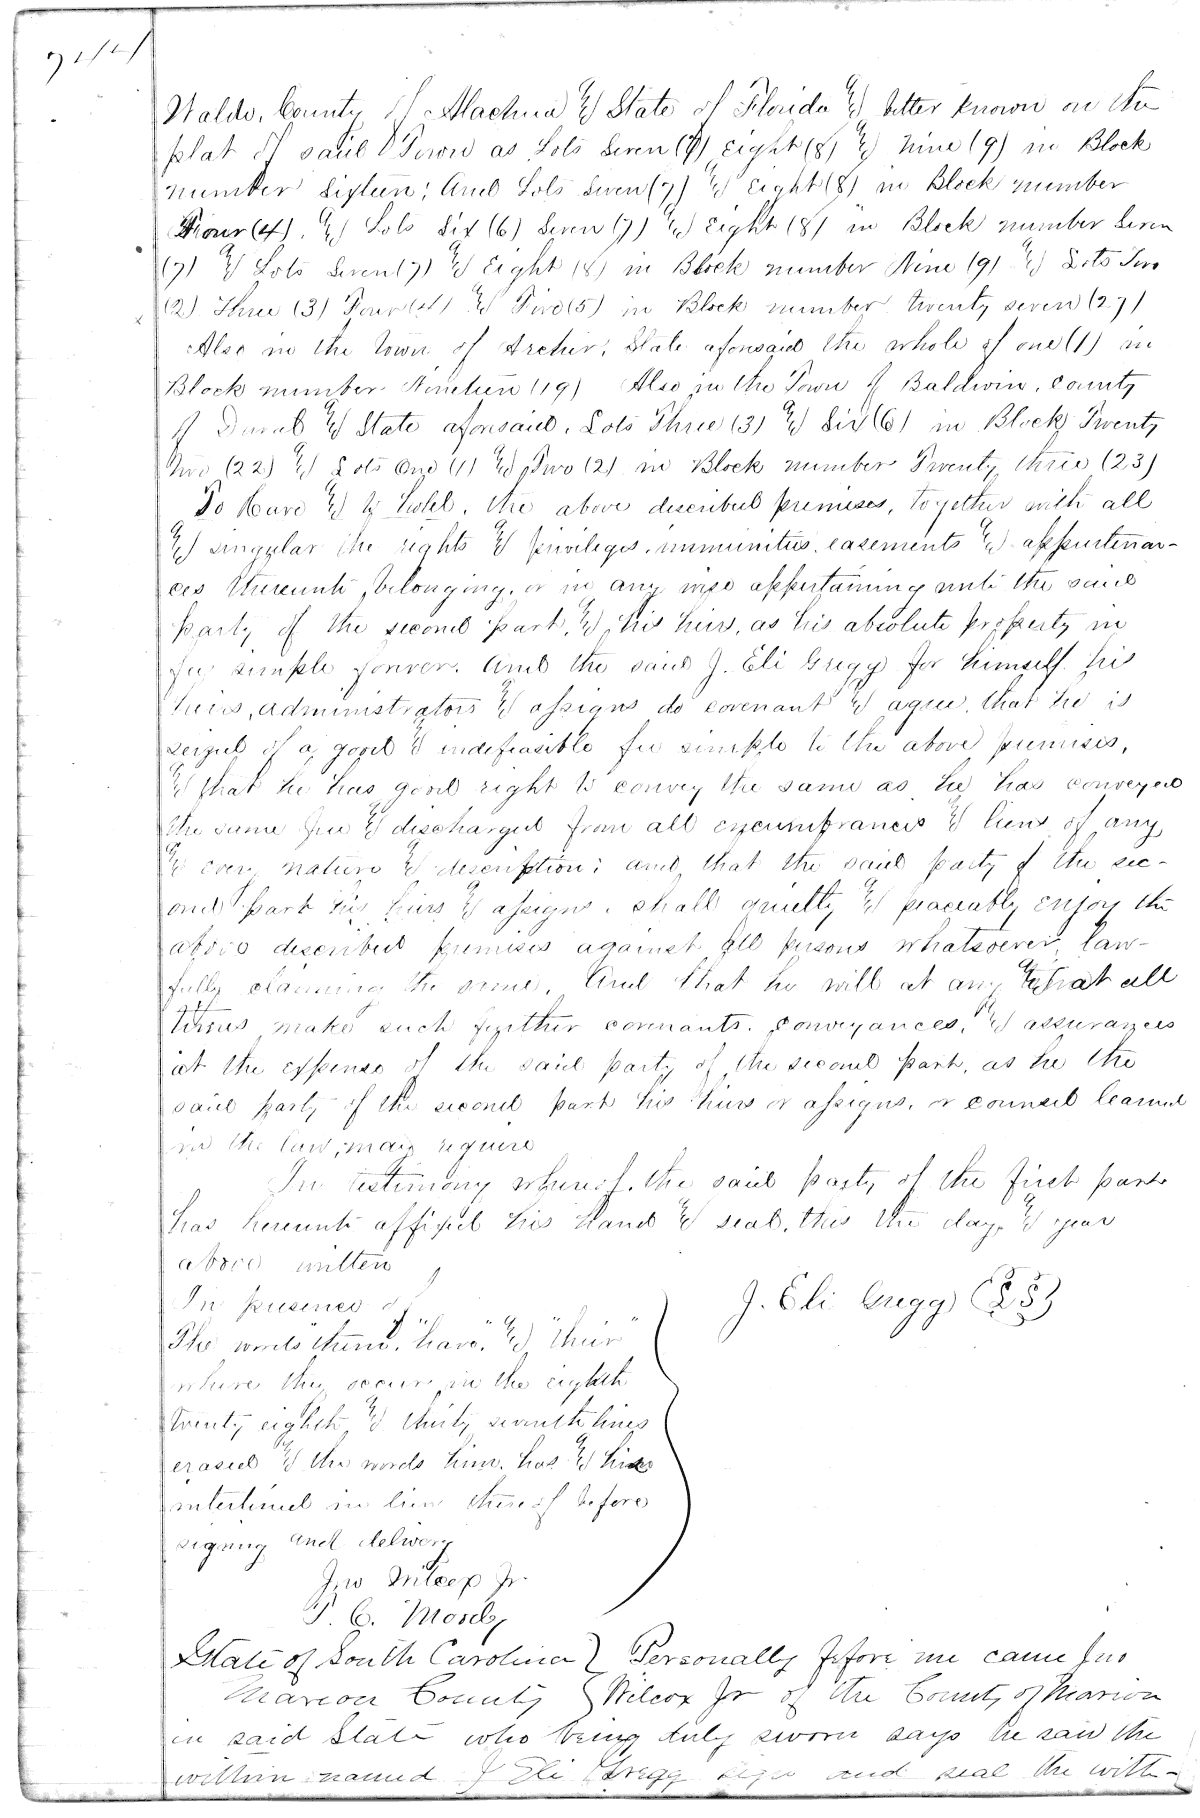 744
Waldo, County of Alachua & State of Florida & better known on the
plat of said Town as Lots Seven (7) Eight (8) & Nine (9) in Block
number Sixteen; And Lots Seven (7) & Eight (8) in Block number
Four (4). & Lots Six (6) Seven (7) & Eight (8) in Block number Seven
(7) & Lots Seven (7) & Eight (8) in Block number Nine (9) & Lots Two
(2) Three (3) Four (4) & Five (5) in Block number twenty seven (27)
Also in the town of Archer, State aforesaid the whole of one (1) in
Block number Nineteen (19) Also in the Town of Baldwin, County
of Duval & State aforesaid, Lots Three (3) & Six (6) in Block Twenty
Two (22) & Lots One (1) & Two (2) in Block number Twenty three (23)
To Have & to Hold, the above described premises, together with all
& singular the rights & privileges, immunities, easements & appurtenan-
ces thereunto belonging, or in any wise appertaining unto the said
party of the second part, & his heirs, as his absolute property in
fee simple forever. And the said J. Eli Gregg for himself his
heirs, administrators & assigns do covenant & agree, that he is
seized of a good & indefeasible fee simple to the above premises,
& that he has good right to convey the same as he has conveyed
the same free & discharged from all encumbrances & liens of any
& every nature & description; and that the said party of the sec-
ond part his heirs & assigns, shall quietly & peaceably enjoy the
above described premises against all persons whatsoever, law-
fully claiming the same. And that he will at any & at all
times make such further covenants, conveyances, & assurances
at the expense of the said party of the second part, as he the
said party of the second part his heirs or assigns, or counsel learned
in the law, may require
In testimony whereof, the said party of the first part
has hereunto affixed his Hand & seal, this the day & year
above written
In presence of
J. Eli Gregg (LS)
The words "them", "have", & "their"
where they occur in the eighth
twenty eighth & thirty seventh lines
erased & the words him, has & his
interlined in lieu thereof before
signing and delivery
Jno Wilcox Jr.
P. C. Mosely
State of South Carolina } Personally before me came Jno
Marion County } Wilcox Jr of the County of Marion
in said State who being duly sworn says he saw the
within named J Eli Gregg sign and seal the with-